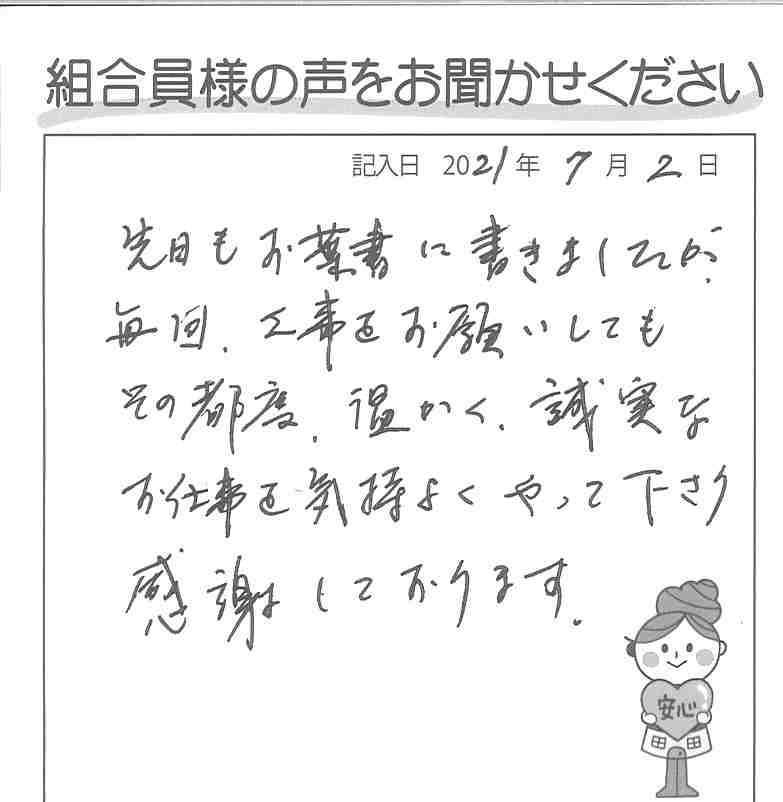 組合員様の声をお聞かせください
記入日 2021年 7月 2日
先日もお葉書に書きましたが、
毎回、工事をお願いしても
その都度、温かく、誠実な
お仕事を気持よくやって下さり
感謝しております。
安心